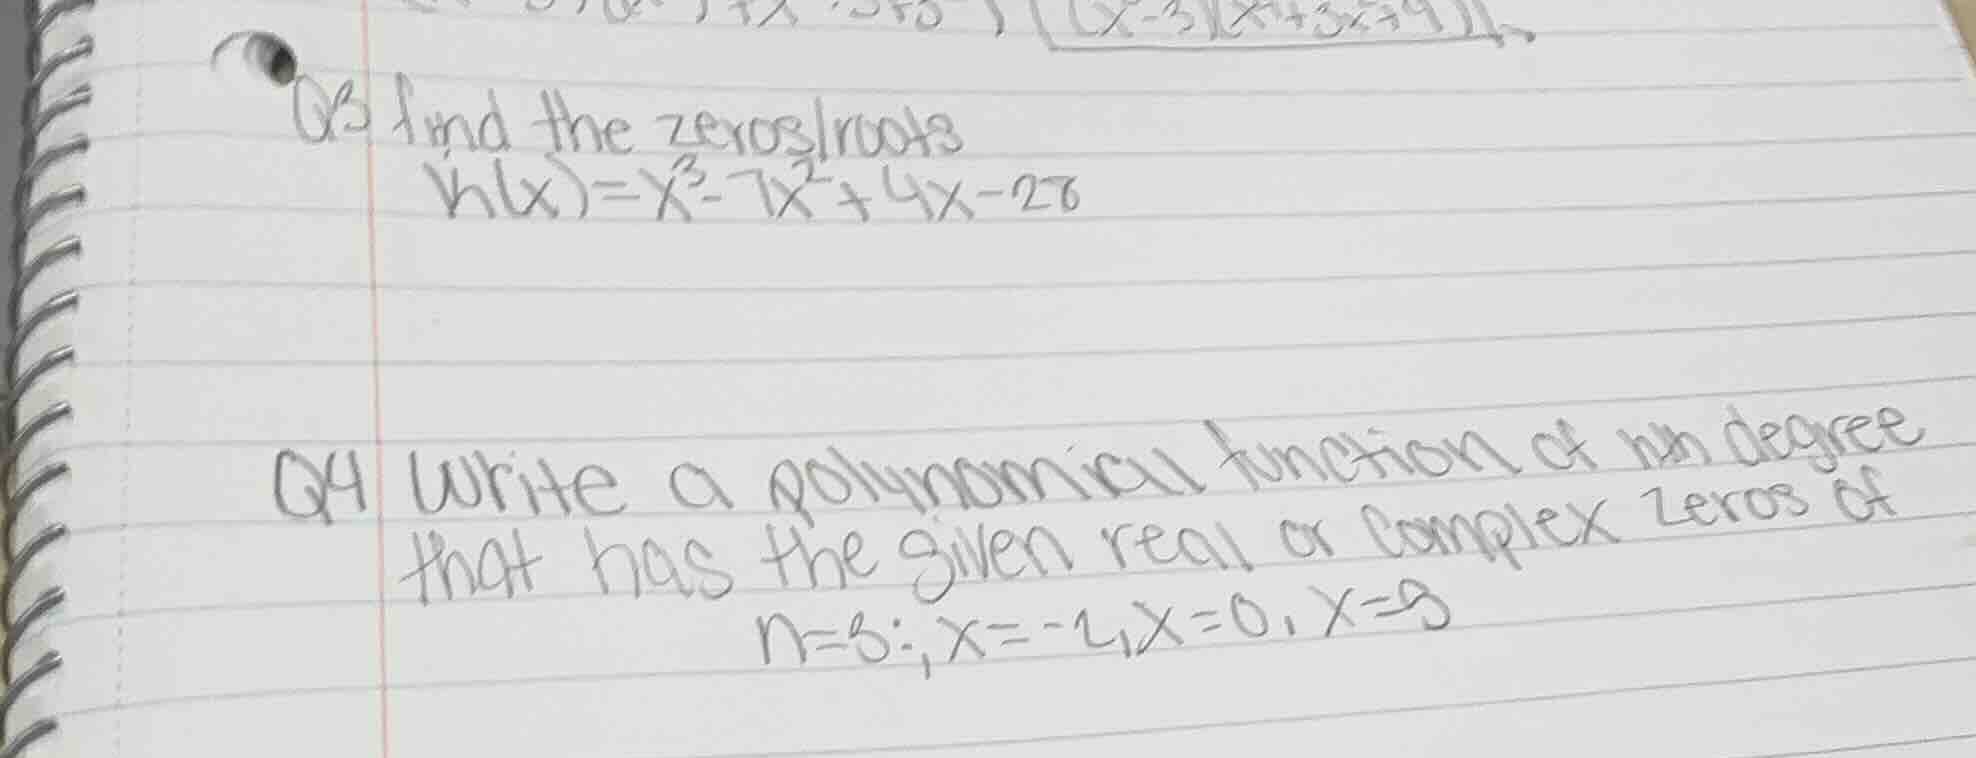 (x-3)(x²+3x+9)
Q3 find the zeros/roots
h(x)=x³-7x²+4x-28
Q4 Write a polynomial function of nth degree
that has the given real or complex zeros of
n=3:, x=-2, x=0, x=